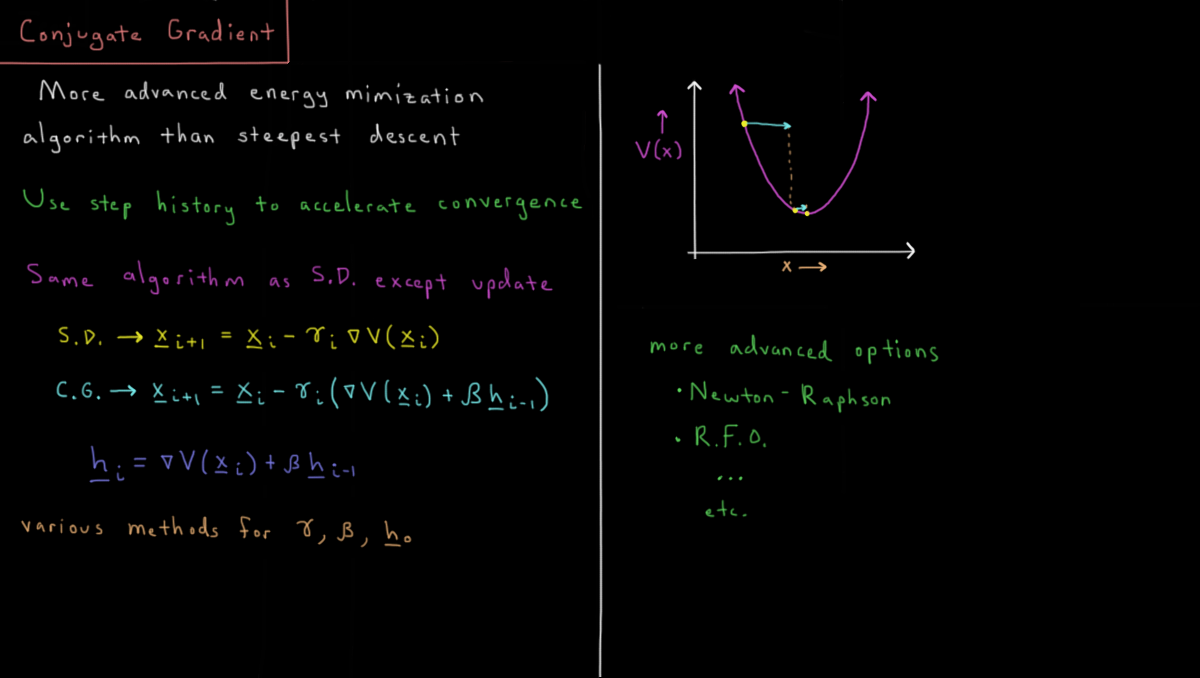 Conjugate Gradient
More advanced energy mimization
algorithm than steepest descent
Use step history to accelerate convergence
Same algorithm as S.D. except update
S.D. → x̲ᵢ₊₁ = x̲ᵢ - γᵢ ∇V(x̲ᵢ)
C.G. → x̲ᵢ₊₁ = x̲ᵢ - γᵢ(∇V(x̲ᵢ) + βh̲ᵢ₋₁)
h̲ᵢ = ∇V(x̲ᵢ) + βh̲ᵢ₋₁
various methods for γ, β, h̲₀
↑
V(x)
x →
more advanced options
· Newton-Raphson
· R.F.O.
...
etc.